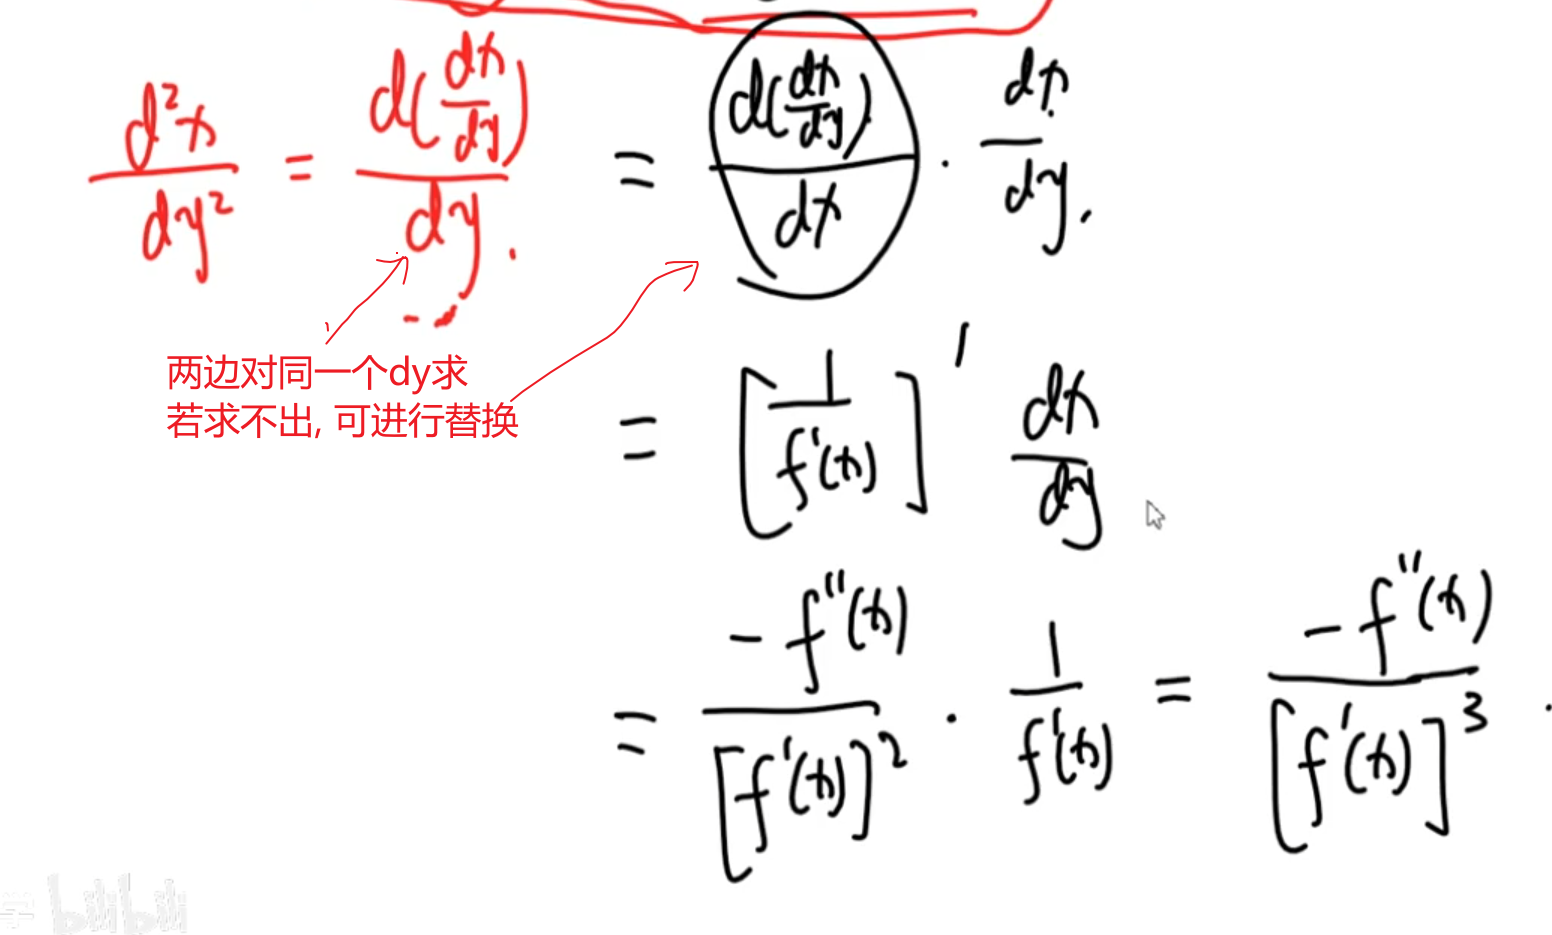 d²x/dy² = d(dx/dy)/dy. = d(dx/dy)/dx · dx/dy.
两边对同一个dy求
若求不出, 可进行替换
= [1/f'(x)]' dx/dy
= -f''(x)/[f'(x)]² · 1/f'(x) = -f''(x)/[f'(x)]³ .
学 bilibili